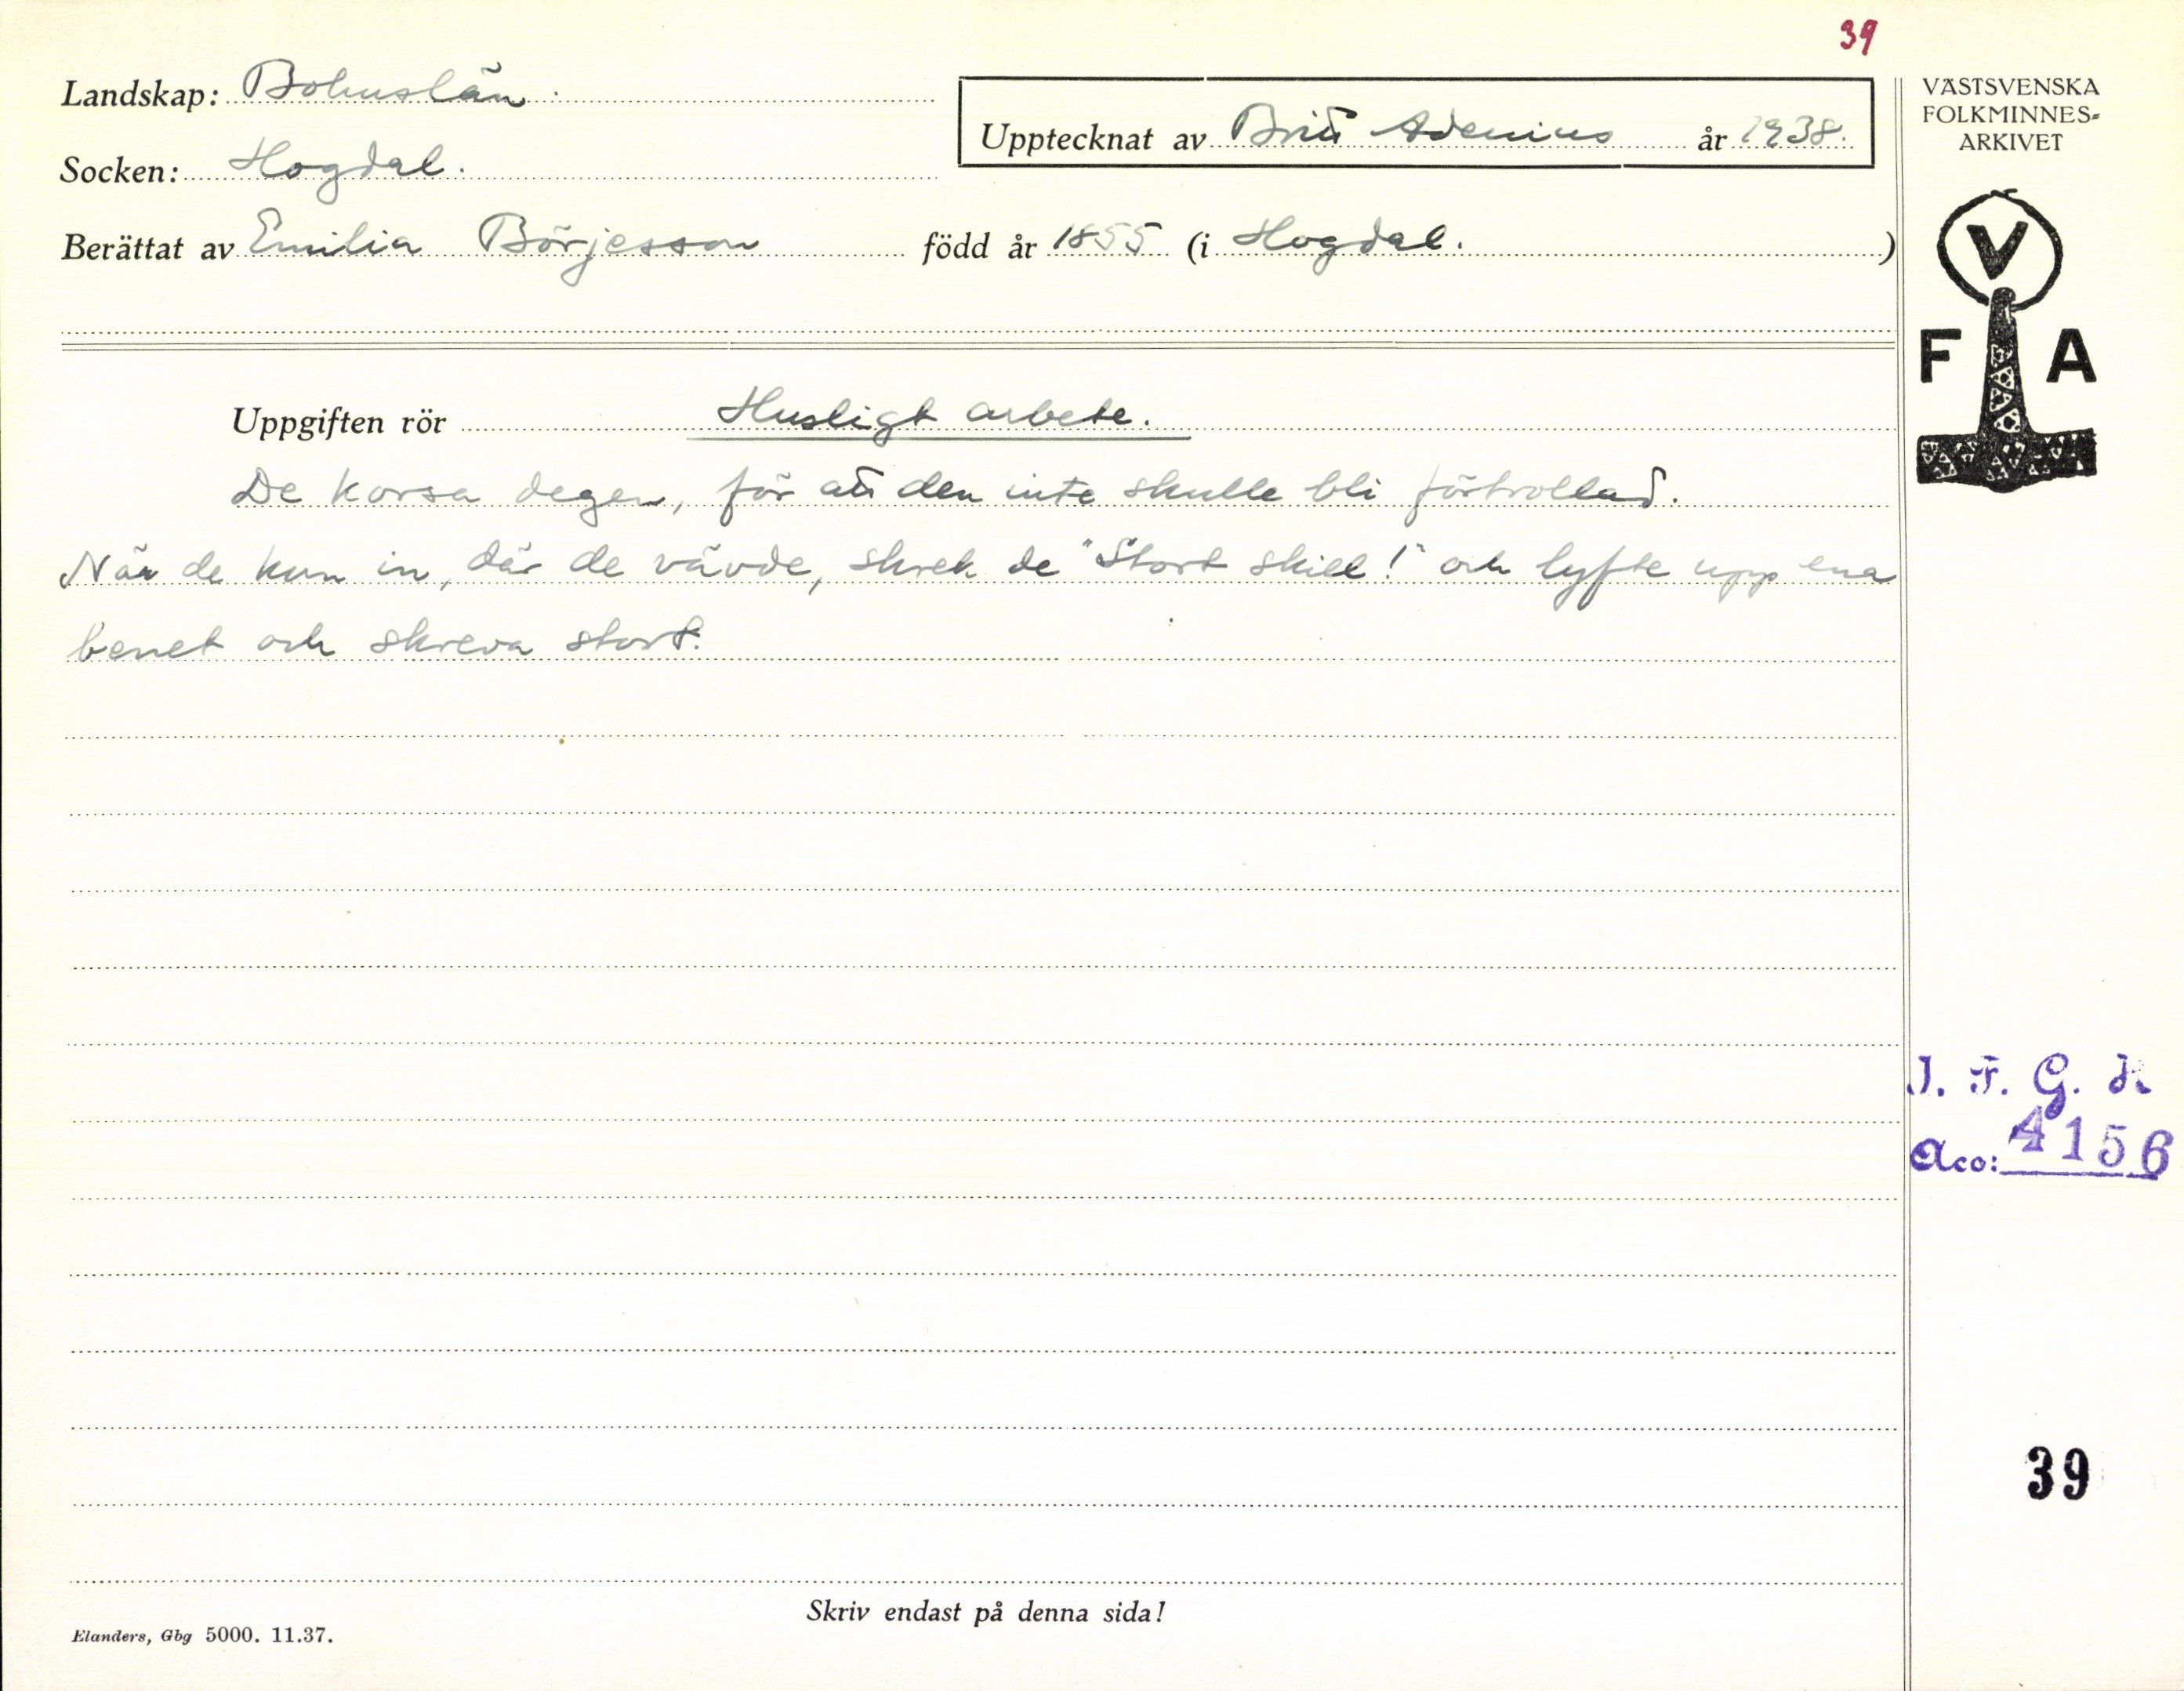 39
Landskap: Bohuslän.
Socken: Hogdal.
Upptecknat av Britt Adenius år 1938.
Berättat av Emilia Börjesson född år 1855 (i Hogdal. )
VÄSTSVENSKA
FOLKMINNES=
ARKIVET
V
F A
Uppgiften rör Husligt arbete.
De korsa degen, för att den inte skulle bli förtrollad.
När de kom in, där de vävde, skrek de "Stort skill!" och lyfte upp ena
benet och skreva stort.
I. F. G. H
Acc: 4156
39
Skriv endast på denna sida!
Elanders, Gbg 5000. 11.37.